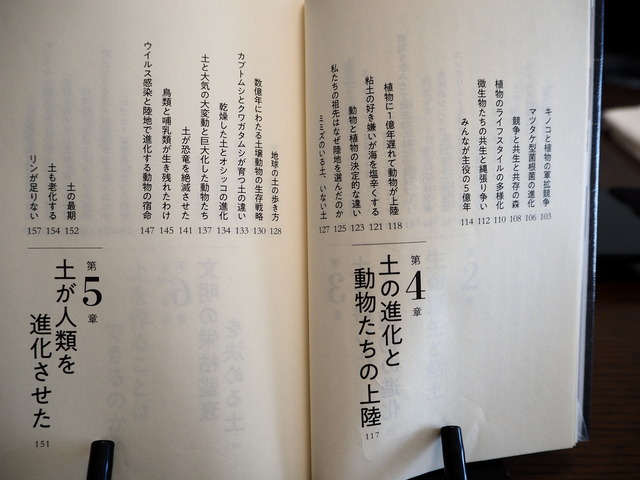 キノコと植物の軍拡競争 103
マツタケ型菌根菌の進化 106
競争と共生と共存の森 108
植物のライフスタイルの多様化 110
微生物たちの共生と縄張り争い 112
みんなが主役の5億年 114
第4章
土の進化と
動物たちの上陸
117
植物に1億年遅れて動物が上陸 118
粘土の好き嫌いが海を塩辛くする 121
動物と植物の決定的な違い 123
私たちの祖先はなぜ陸地を選んだのか 125
ミミズのいる土、いない土 127
地球の土の歩き方 128
数億年にわたる土壌動物の生存戦略 130
カブトムシとクワガタムシが育つ土の違い 133
乾燥した土とオシッコの進化 134
土と大気の大変動と巨大化した動物たち 137
土が恐竜を絶滅させた 141
鳥類と哺乳類が生き残れたわけ 145
ウイルス感染と陸地で進化する動物の宿命 147
第5章
土が人類を
進化させた
151
土の最期 152
土も老化する 154
リンが足りない 157